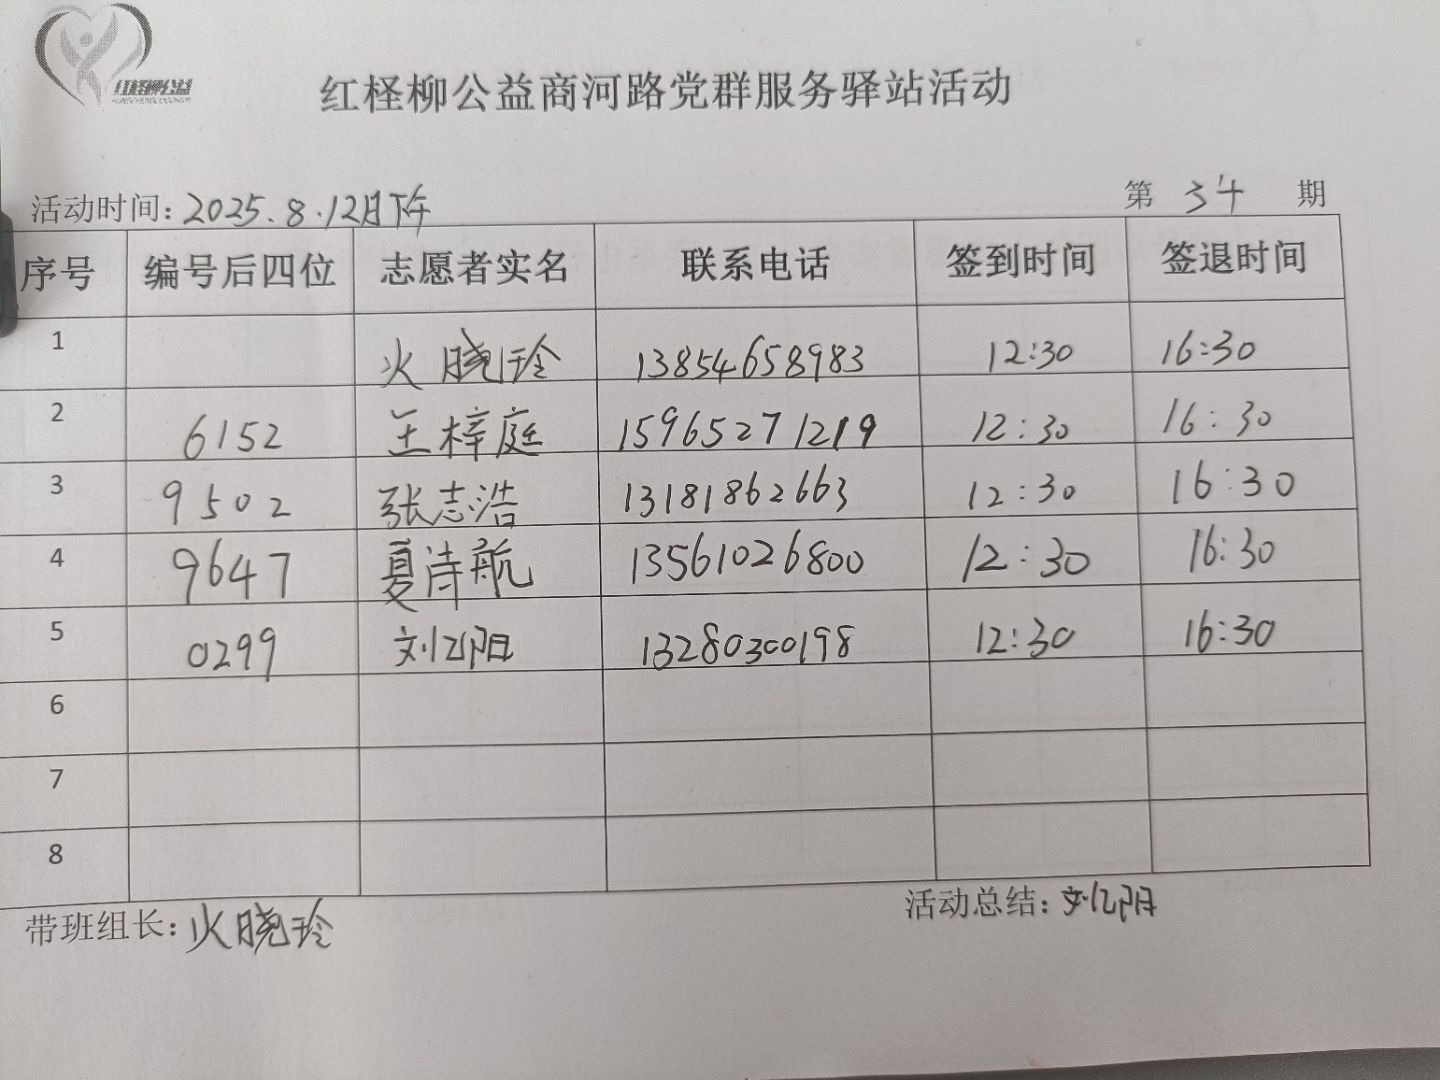 红柽柳公益
红柽柳公益商河路党群服务驿站活动
活动时间：2025.8.12日下午 第 34 期
序号 编号后四位 志愿者实名 联系电话 签到时间 签退时间
1 火晓玲 13854658983 12:30 16:30
2 6152 王梓庭 15965271219 12:30 16:30
3 9502 张志浩 13181862663 12:30 16:30
4 9647 夏诗航 13561026800 12:30 16:30
5 0299 刘亿阳 13280300198 12:30 16:30
6
7
8
带班组长：火晓玲 活动总结：刘亿阳